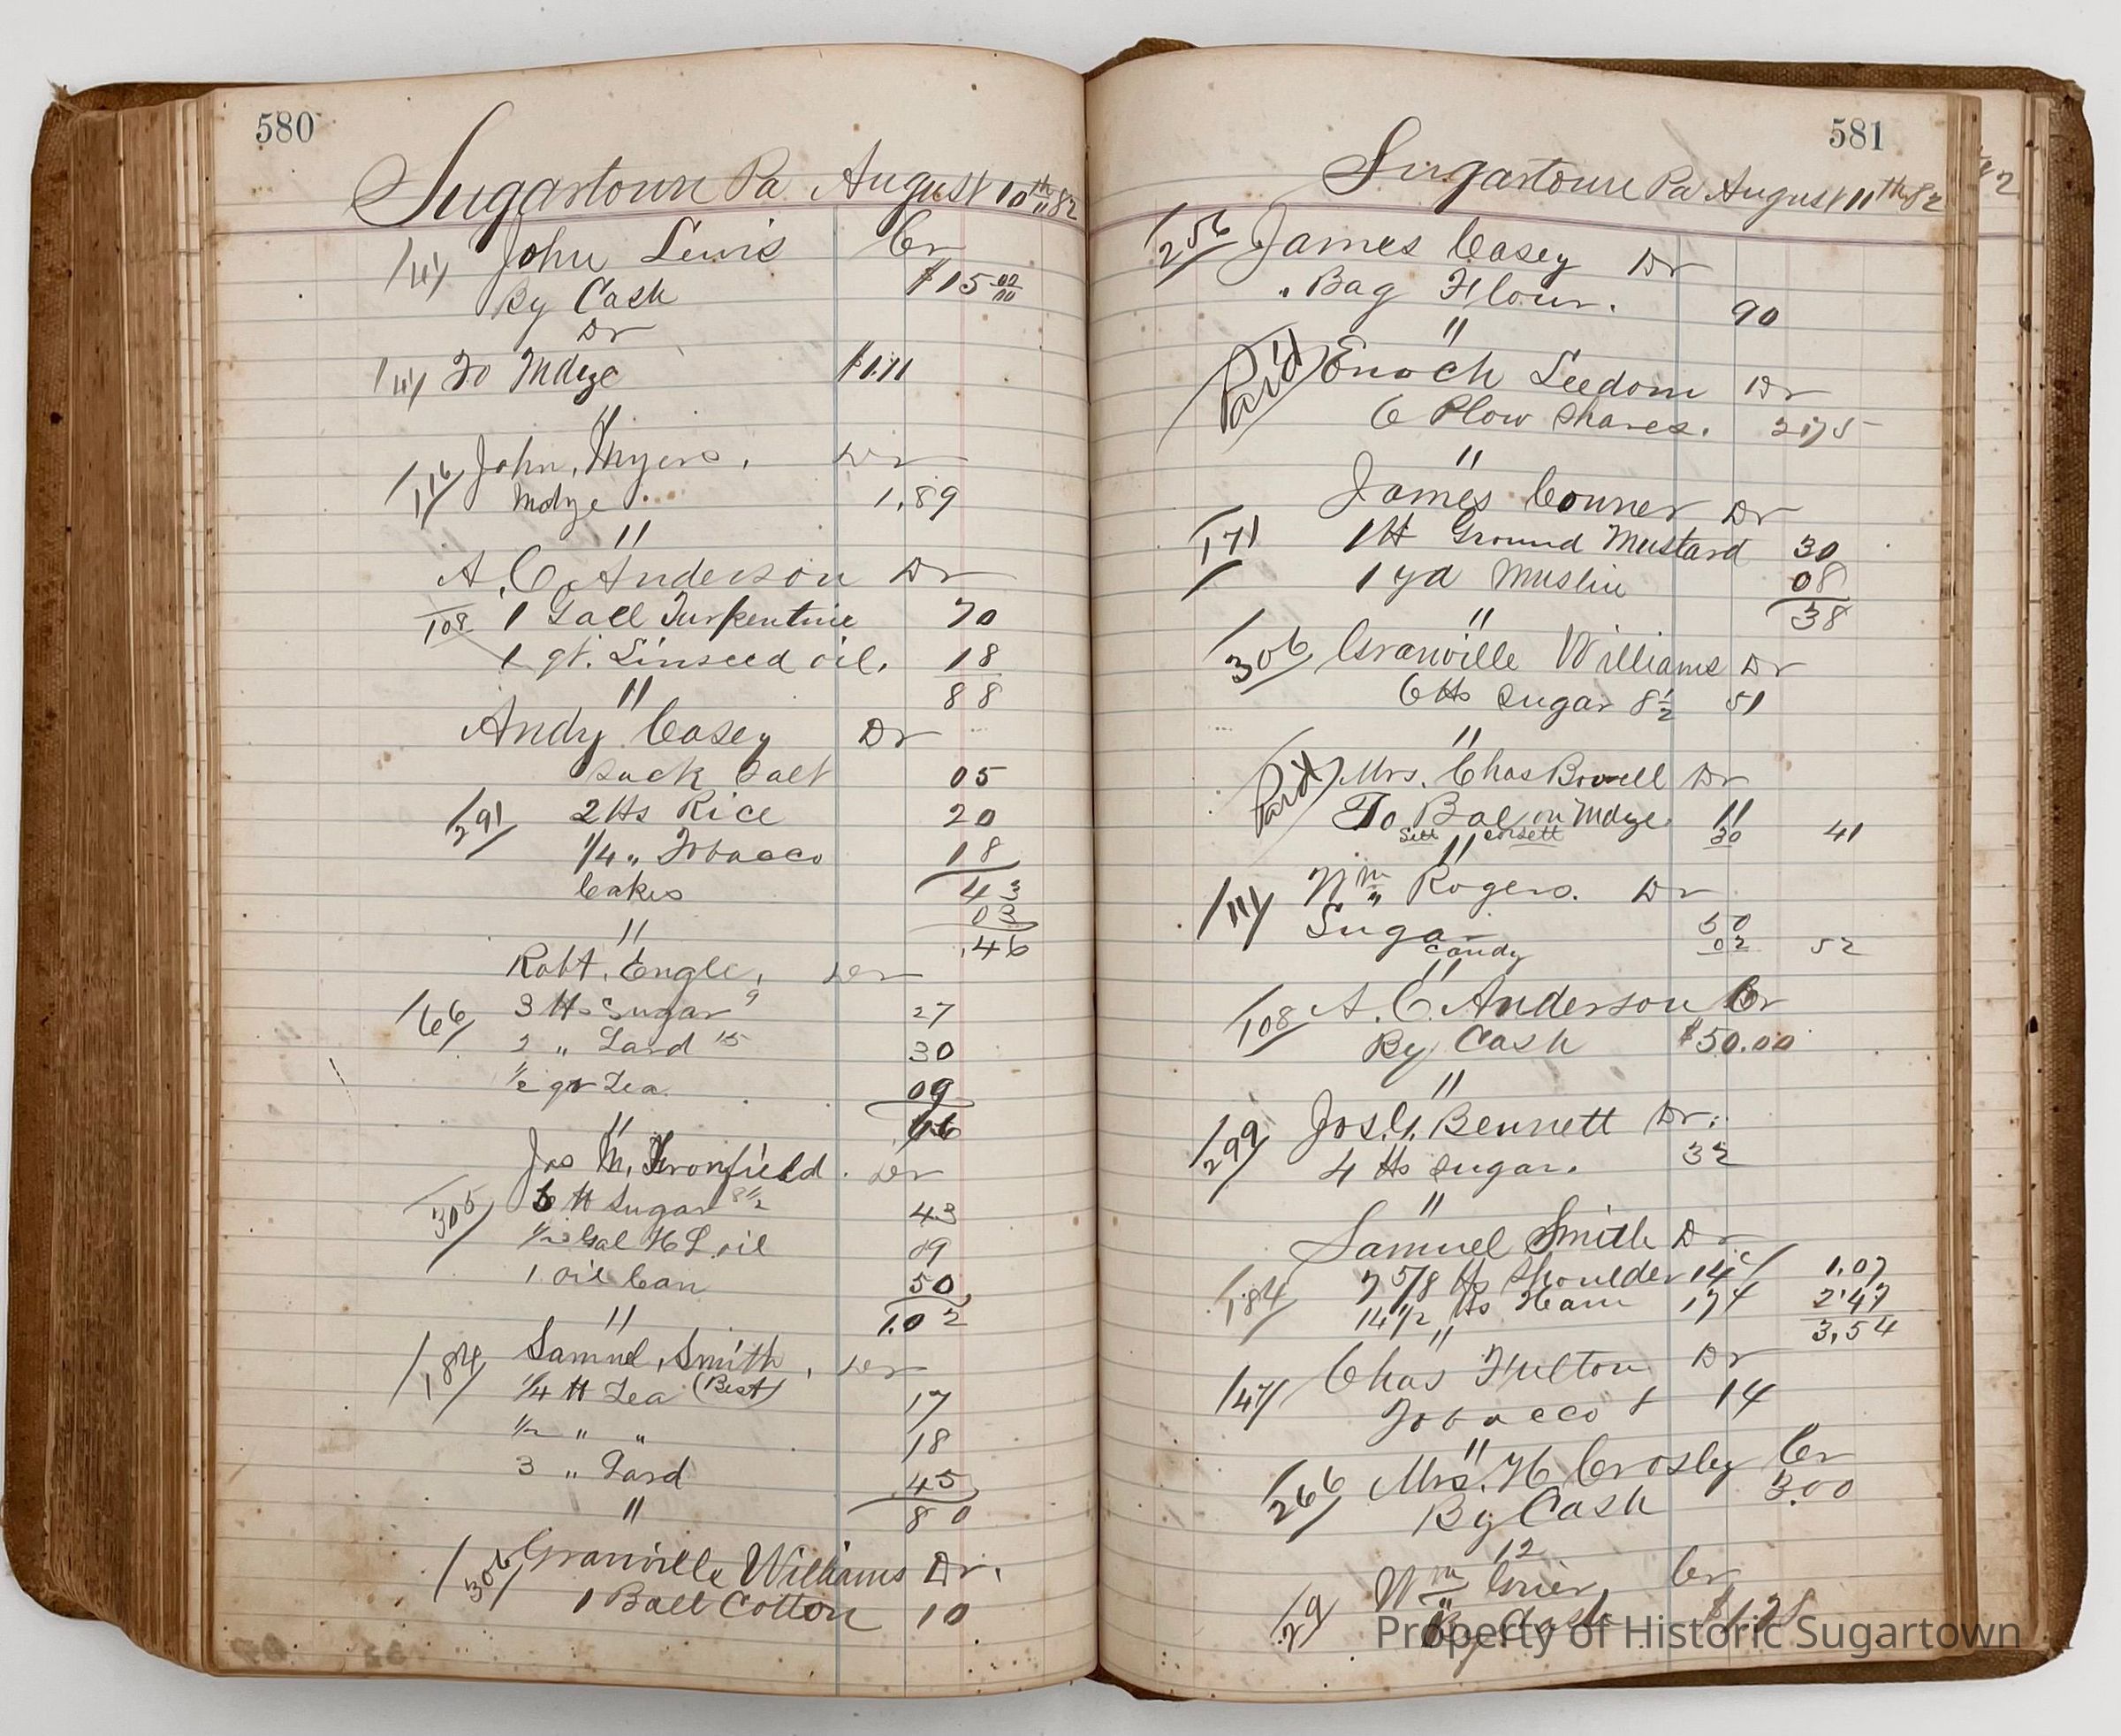 580
Sugartown Pa August 10th 82
John Lewis Cr
141 By Cash $15 00/00
Dr
141 To Mdze $1.11
"
116 John, Myers, Dr
Mdze. 1.89
"
A. C. Anderson Dr
108 1 Gall Turpentine 70
1 qt. Linseed oil. 18
88
"
Andy Casey Dr
Sack Salt 05
291 2 lbs Rice 20
1/4 " Tobacco 18
Cakes 43
03
.46
"
Robt. Engle, Dr
166 3 lbs Sugar 9 27
2 " Lard 15 30
1/2 qr Tea 09
66
"
Jas M, Dr
305 5 lb Sugar 8 1/2 43
Gal H L oil 09
1 Oil Can 50
1.02
"
184 Samuel, Smith, Dr
1/4 lb Tea (Best) 17
1/2 " " 18
3 " Lard 45
80
"
306 Granville Williams Dr.
1 Ball Cotton 10
581
Sugartown Pa August 11th 82
256 James Casey Dr
" Bag Flour. 90
"
Paid Enoch Leedom Dr
6 Plow Shares. 2.75
"
James Conner Dr
171 1 lb Ground Mustard 30
1 yd Muslin 08
38
"
306 Granville Williams Dr
6 lbs Sugar 8 1/2 51
"
Paid Mrs. Chas Dr
To Bal on Mdze 11
Sett corsett 30 41
"
111 Wm Rogers. Dr
Sugar 50
Candy 02 52
"
108 A. C. Anderson Cr
By Cash $50.00
"
299 Jos. Bennett Dr.
4 lbs sugar. 32
"
Samuel Smith Dr
184 7 5/8 lbs Shoulder 14c 1.07
14 1/2 lbs Ham 17c 2.47
3,54
"
147 Chas Fulton Dr
Tobacco 14
"
266 Mrs. H Crosby Cr
By Cash 3.00
12
29 Wm Grier, Cr
By Cash
Property of Historic Sugartown